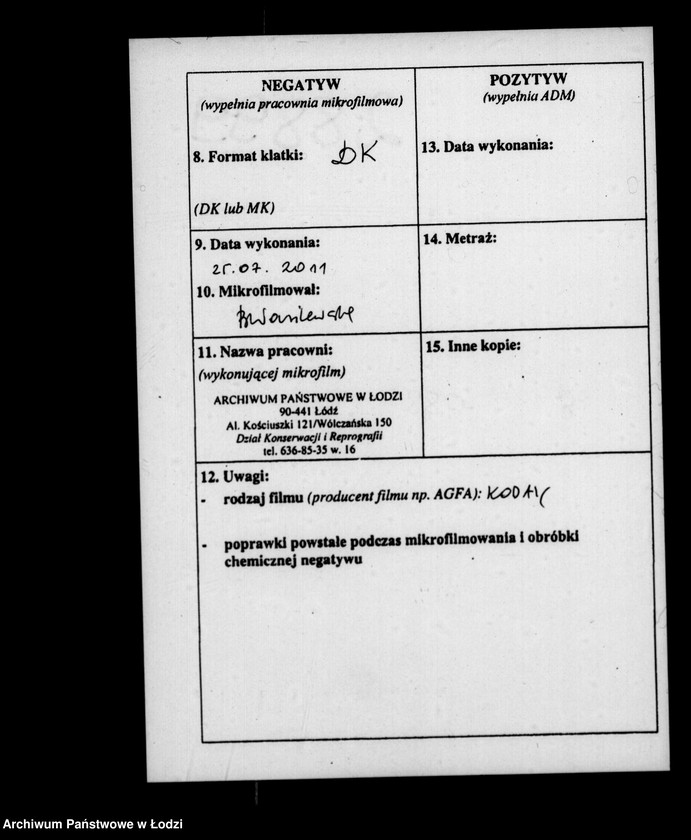 NEGATYW
(wypełnia pracownia mikrofilmowa)
8. Format klatki: DK
(DK lub MK)
9. Data wykonania:
25.07.2011
10. Mikrofilmował:
11. Nazwa pracowni:
(wykonującej mikrofilm)
ARCHIWUM PAŃSTWOWE W ŁODZI
90-441 Łódź
Al. Kościuszki 121/Wólczańska 150
Dział Konserwacji i Reprografii
tel. 636-85-35 w. 16
POZYTYW
(wypełnia ADM)
13. Data wykonania:
14. Metraż:
15. Inne kopie:
12. Uwagi:
- rodzaj filmu (producent filmu np. AGFA): KODAK
- poprawki powstałe podczas mikrofilmowania i obróbki
chemicznej negatywu
Archiwum Państwowe w Łodzi